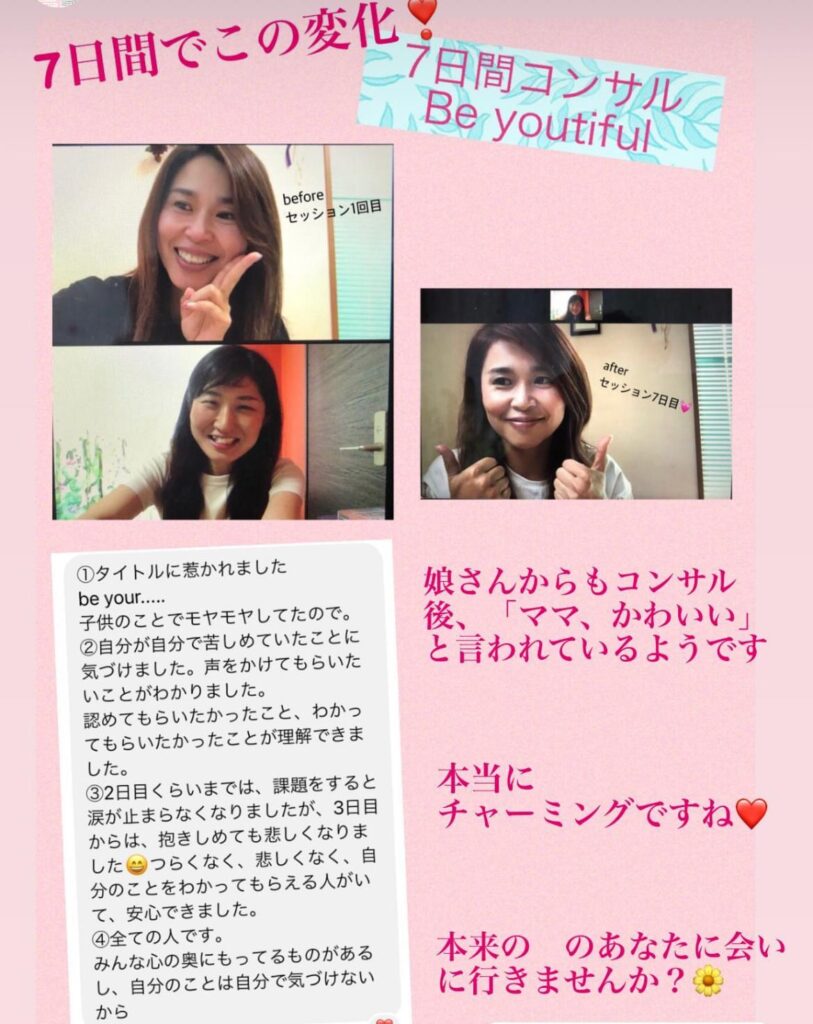 7日間でこの変化❣️
7日間コンサル
Be youtiful
before
セッション1回目
after
セッション7日目💕
①タイトルに惹かれました
be your.....
子供のことでモヤモヤしてたので。
②自分が自分で苦しめていたことに
気づけました。声をかけてもらいた
いことがわかりました。
認めてもらいたかったこと、わかっ
てもらいたかったことが理解できま
した。
③2日目くらいまでは、課題をすると
涙が止まらなくなりましたが、3日目
からは、抱きしめても悲しくなりま
した😄つらくなく、悲しくなく、自
分のことをわかってもらえる人がい
て、安心できました。
④全ての人です。
みんな心の奥にもってるものがある
し、自分のことは自分で気づけない
から
娘さんからもコンサル
後、「ママ、かわいい」
と言われているようです
本当に
チャーミングですね❤️
本来の　のあなたに会い
に行きませんか？🌼